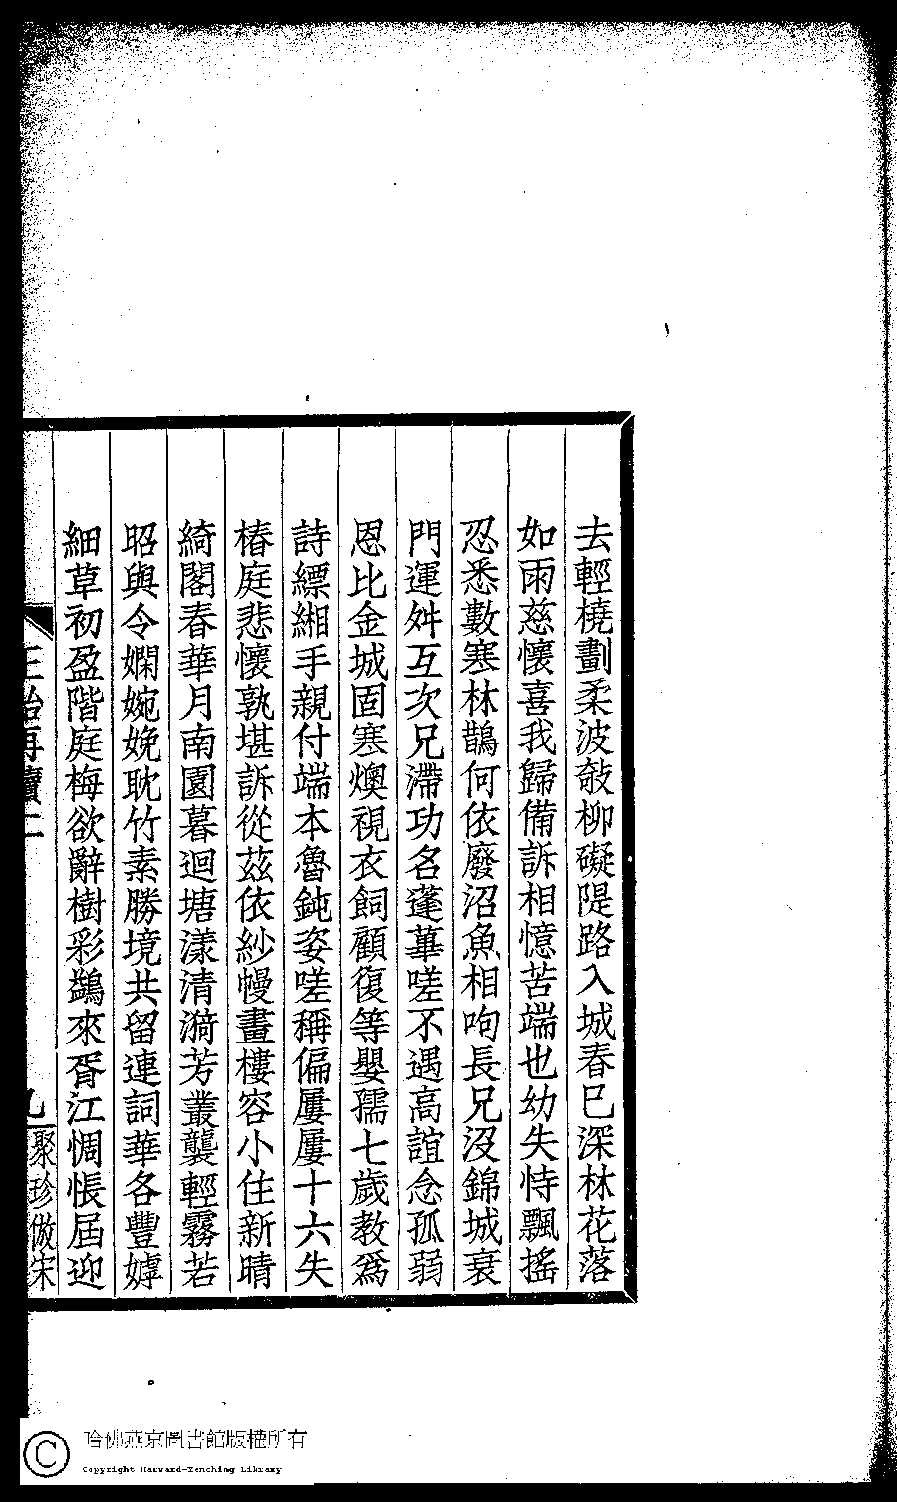 去輕橈劃柔波敧柳礙隄路入城春巳深林花落
如雨慈懷喜我歸備訴相憶苦端也幼失恃飄搖
忍悉數寒林鵲何依廢沼魚相呴長兄沒錦城衰
門運舛互次兄滯功名蓬蓽嗟不遇高誼念孤弱
恩比金城固寒燠視衣飼顧復等嬰孺七歲教爲
詩縹緗手親付端本魯鈍姿嗟稱偏屢屢十六失
椿庭悲懷孰堪訴從茲依紗幔畫樓容小住新晴
綺閣春華月南園暮迴塘漾清漪芳叢襲輕霧若
昭與令嫻婉娩耽竹素勝境共留連詞華各豐嫭
細草初盈階庭梅欲辭樹彩鷁來胥江惆悵屆迎
再續二
九
聚珍倣宋
哈佛燕京圖書館版權所有
Copyright Harvard-Yenching Library